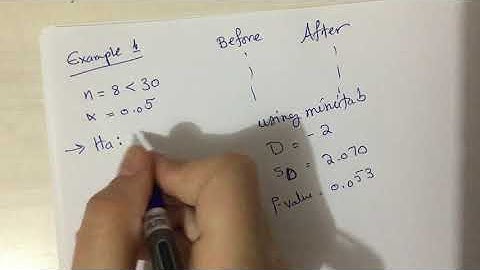 Example 1
n = 8 < 30
α = 0.05
→ Ha:
Before After
using minitab
D = -2
SD = 2.070
P-value = 0.053